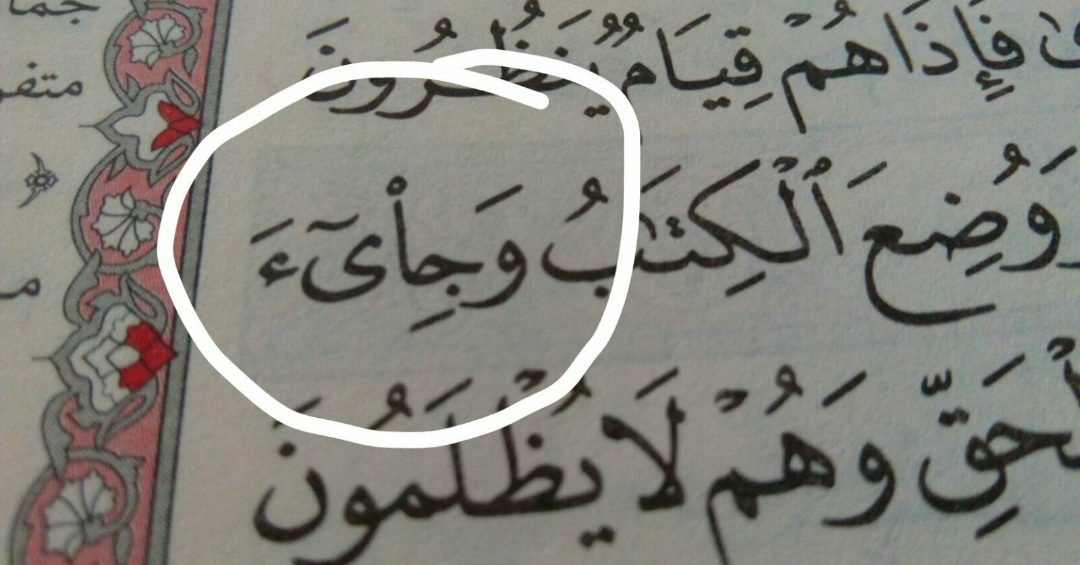 فَإِذَا هُمْ قِيَامٌ يَنظُرُونَ
وَوُضِعَ ٱلْكِتَـٰبُ وَجِا۟ىٓءَ
ٱلْحَقِّ وَهُمْ لَا يُظْلَمُونَ
متفر